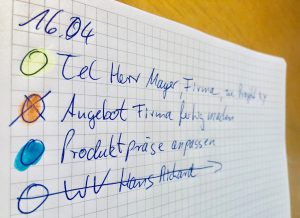 16.04
Tel Herr Mayer, Firma, zu Projekt xy
Angebot Firma fertig machen
Produktpräse anpassen
WV Hans